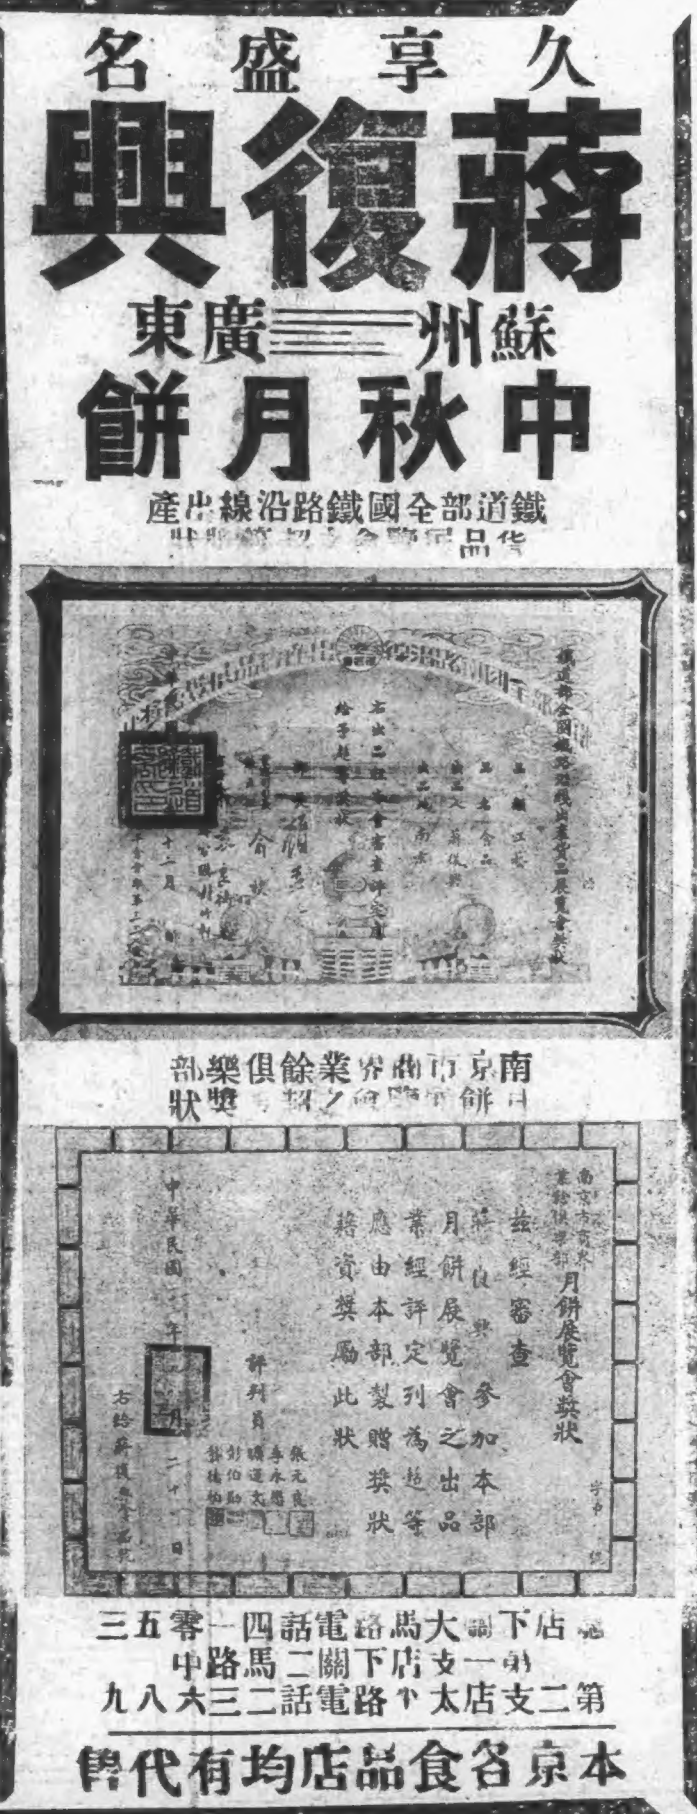 久享盛名
蔣復興
蘇州 廣東
中秋月餅
鐵道部全國鐵路沿線出產
貨品展覽會之超等獎狀
鐵道部全國鐵路沿線出產貨品展覽會獎狀
品類 工藝
品名 食品
出品人 蔣復興
出品地 南京
右出品經本會審查評定應
給予超等獎狀
南京市商界業餘俱樂部
月餅展覽會之超等獎狀
南京市商界
業餘俱樂部 月餅展覽會獎狀
茲經審查
蔣復興參加本部
月餅展覽會之出品
業經評定列為超等
應由本部製贈獎狀
藉資獎勵此狀
評判員
張元良
李永
彭伯勛
中華民國 年 月二十 日
右給蔣復興
店下關大馬路電話四一零五三
第一支店下關二馬路中
第二支店太平路電話二三六八九
本京各食品店均有代售